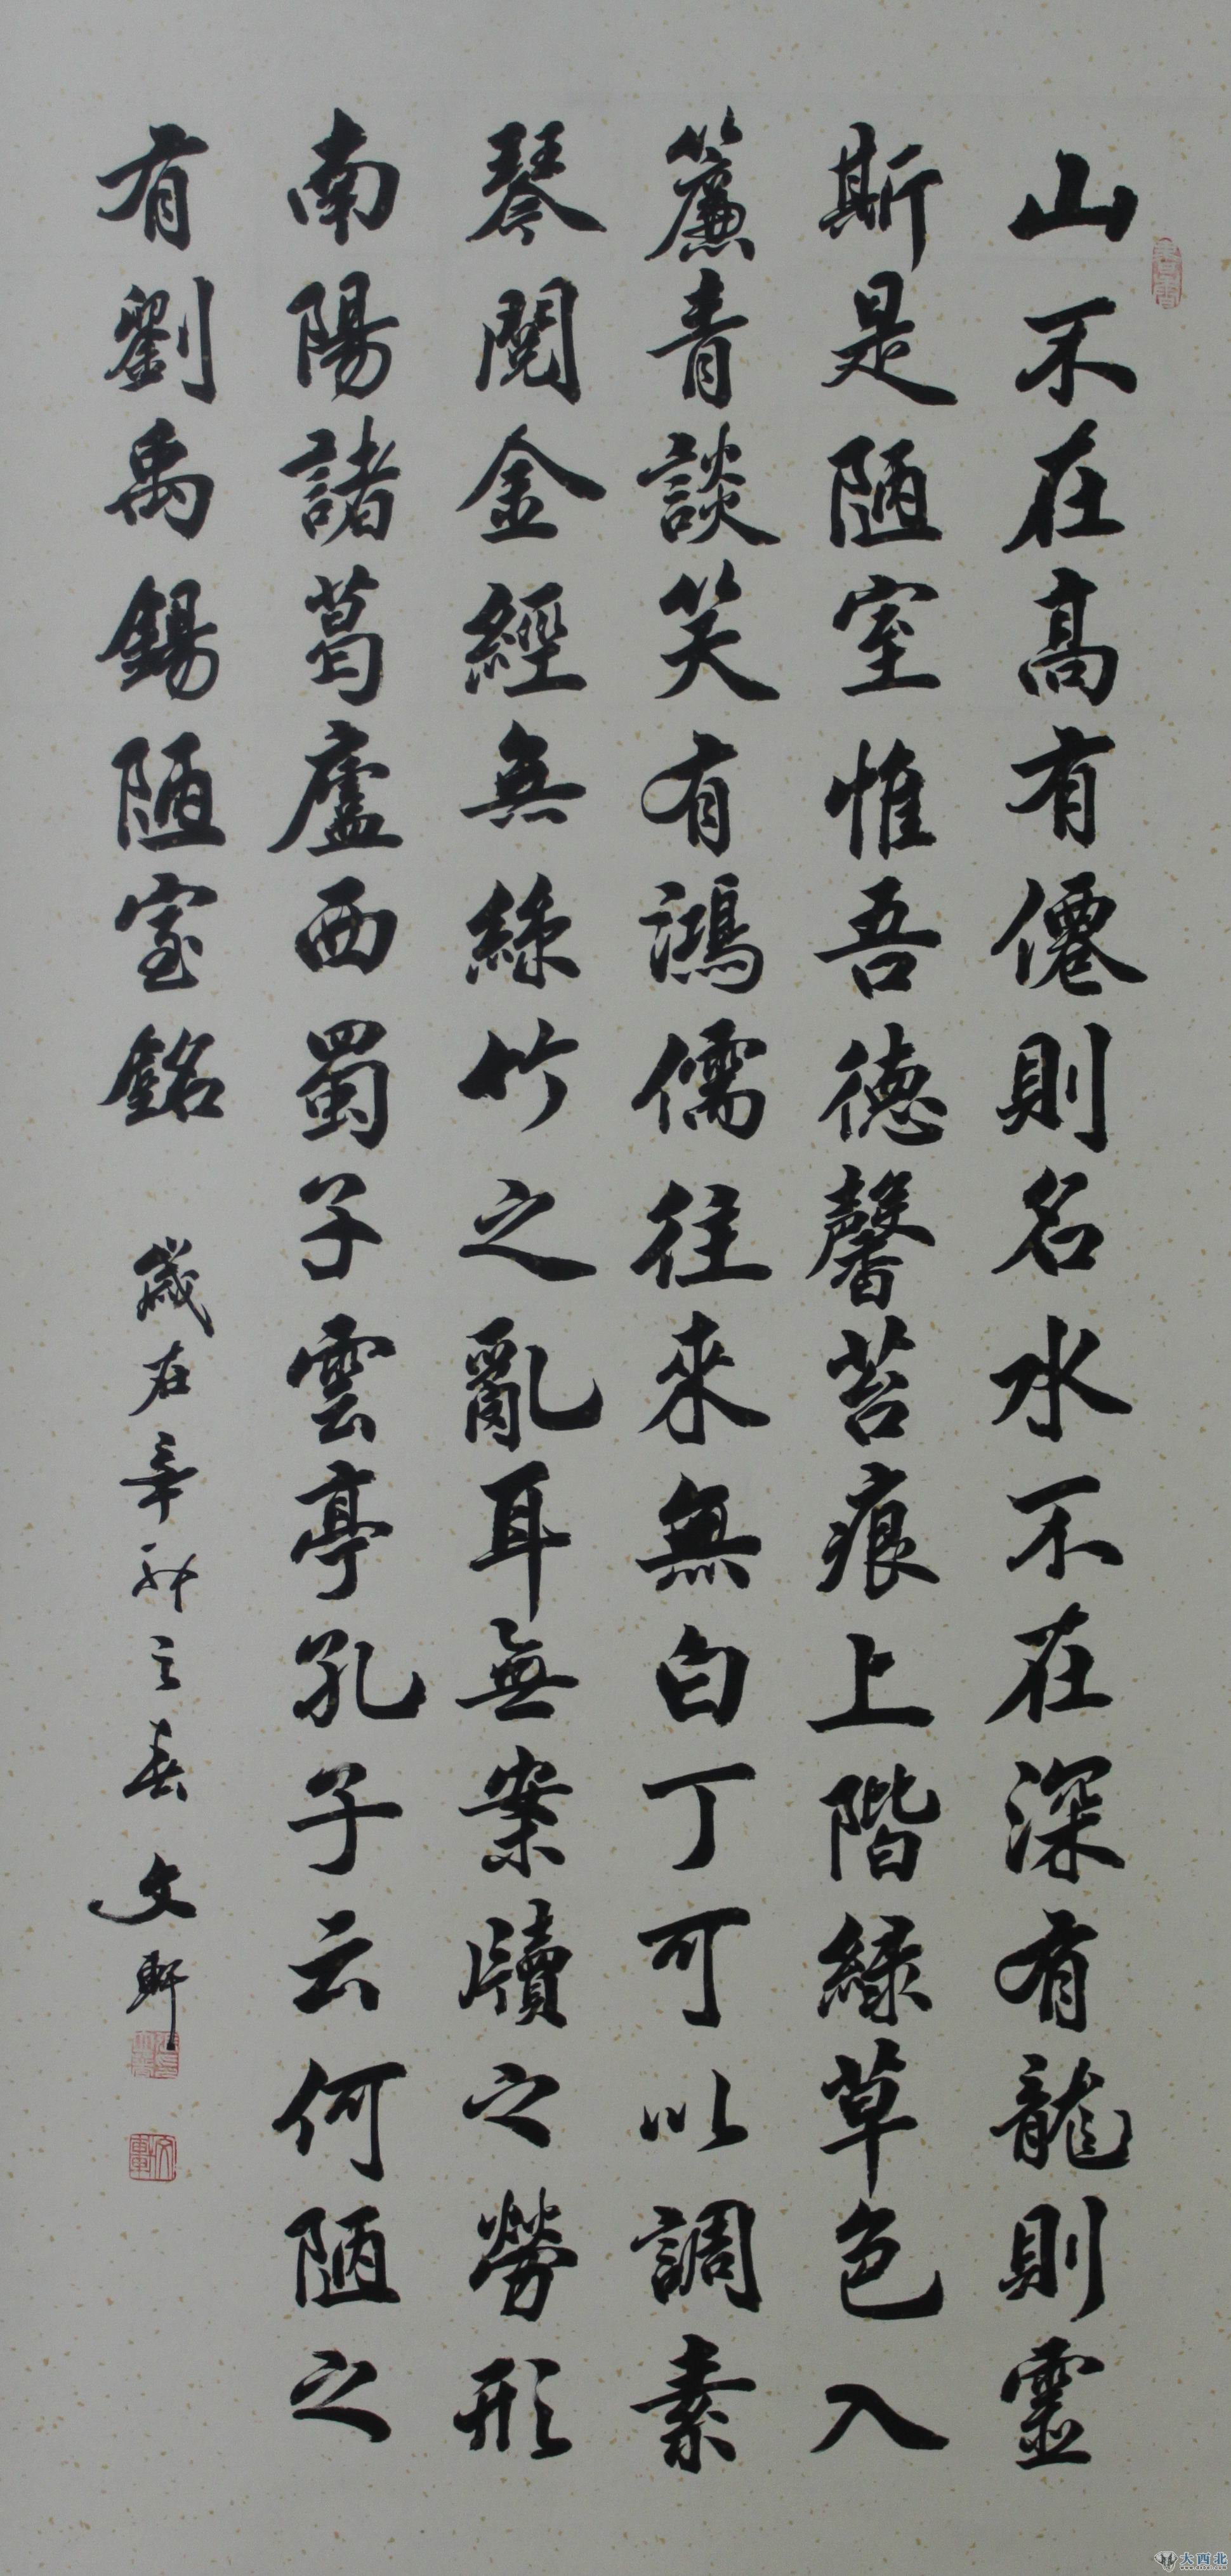 山不在高有僊則名水不在深有龍則靈
斯是陋室惟吾德馨苔痕上階綠草色入
簾青談笑有鴻儒往來無白丁可以調素
琴閱金經無絲竹之亂耳無案牘之勞形
南陽諸葛廬西蜀子雲亭孔子云何陋之
有劉禹錫陋室銘 歲在辛卯之春 文軒
大西北